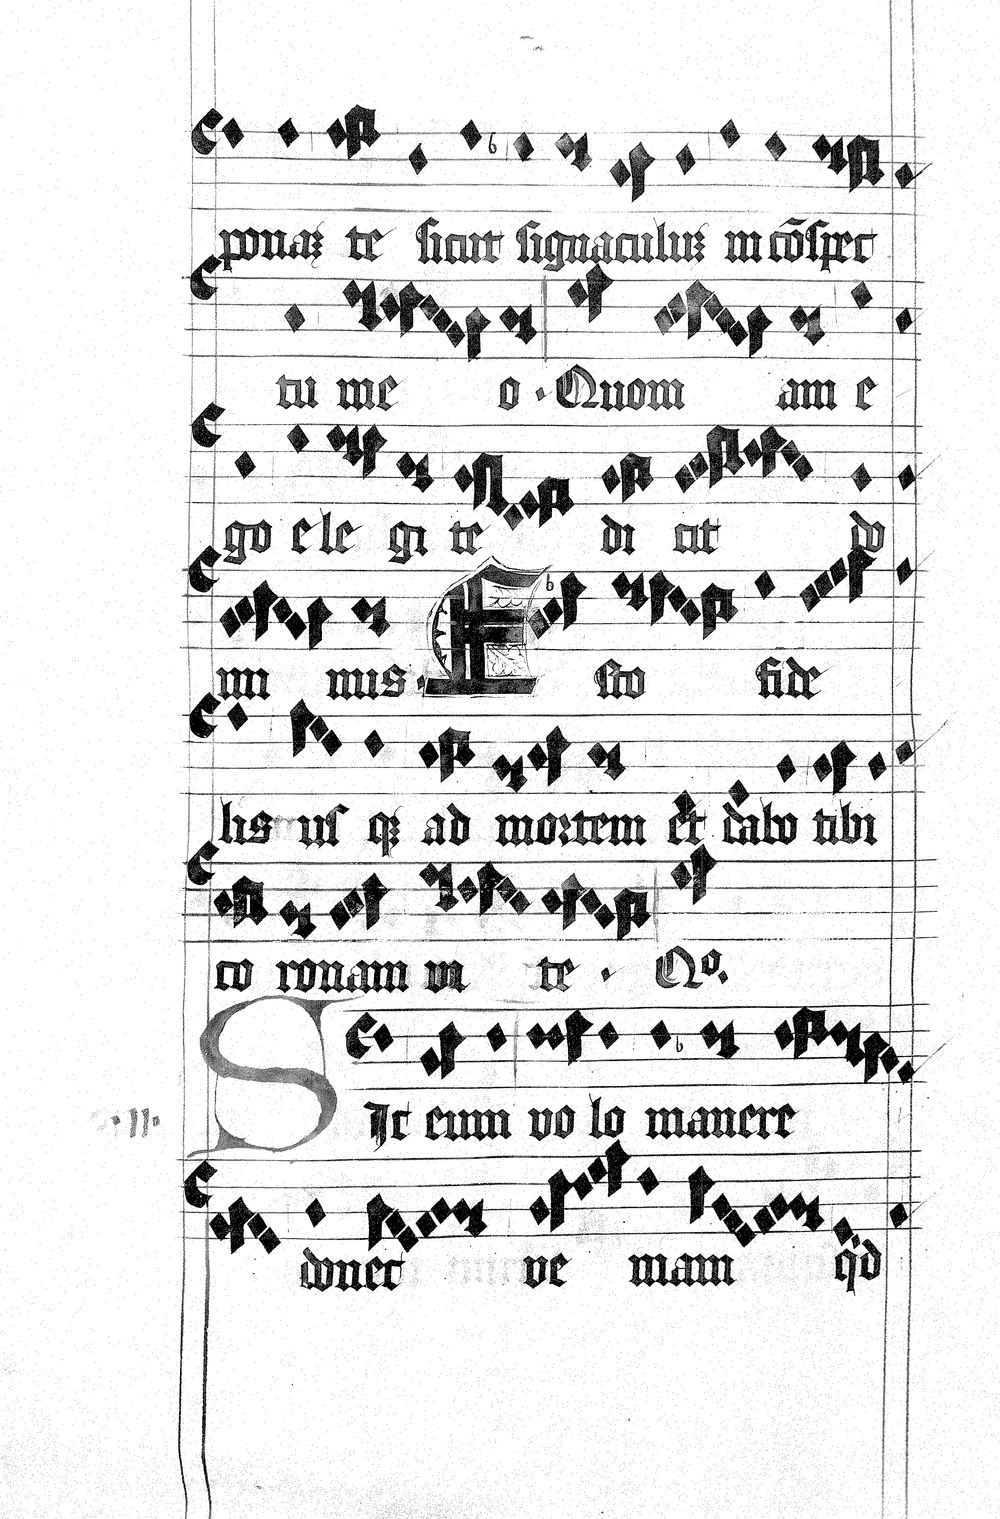 ponaꝫ te sicut signaculuꝫ in cōspec
tu me o . Quoni am e
go ele gi te di cit do
mi nus . Esto fide
lis us qꝫ ad moꝛtem et dabo tibi
co ronam vi te . Qo.
Sic eum vo lo manere
.II.
donec ve niam qd